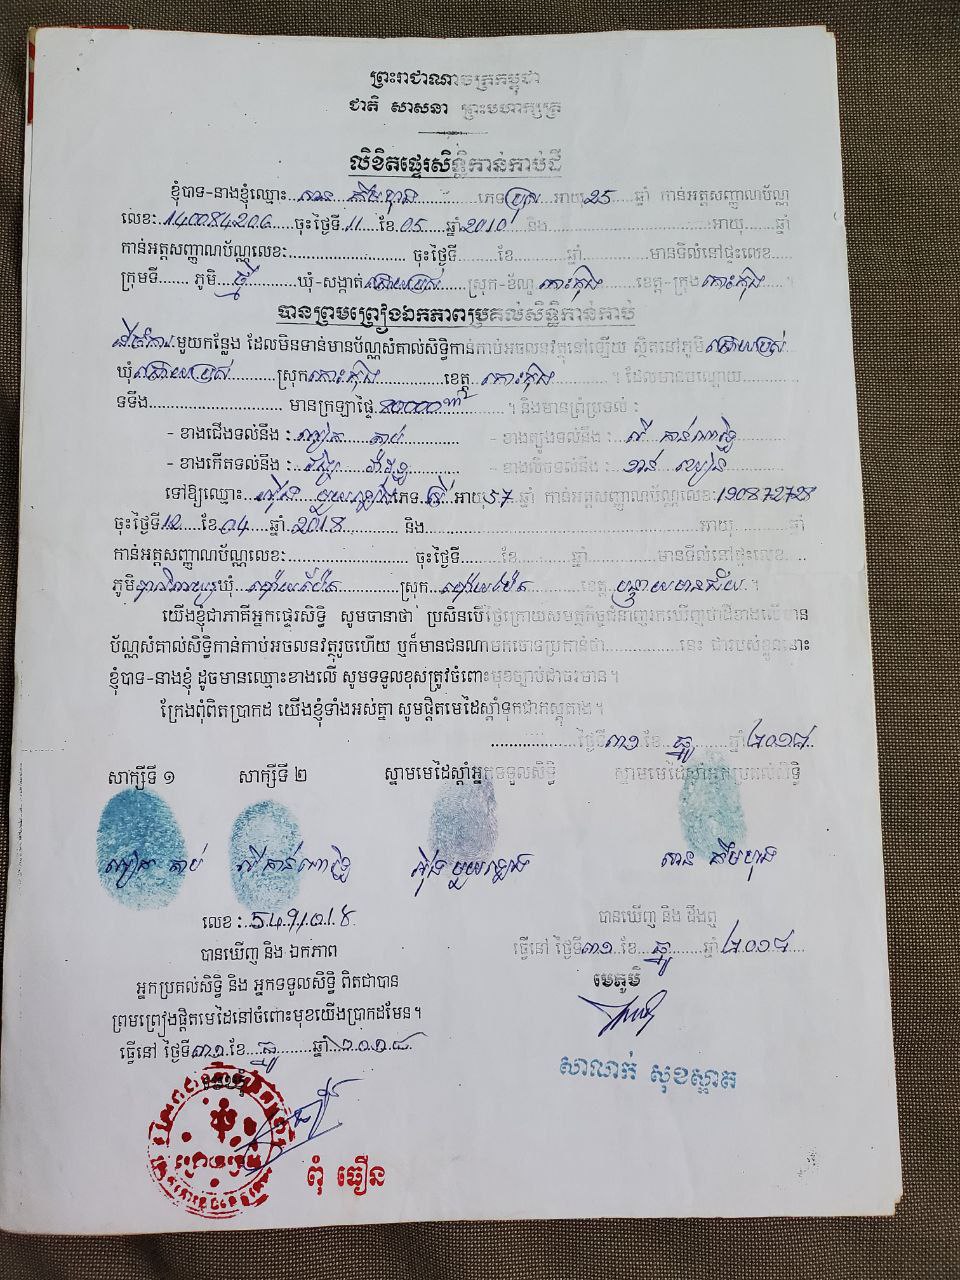 ព្រះរាជាណាចក្រកម្ពុជា
ជាតិ សាសនា ព្រះមហាក្សត្រ
លិខិតផ្ទេរសិទ្ធិកាន់កាប់ដី
ខ្ញុំបាទ-នាងខ្ញុំឈ្មោះ ភេទ ប្រុស អាយុ 25 ឆ្នាំ កាន់អត្តសញ្ញាណប័ណ្ណ
លេខ: 140084206 ចុះថ្ងៃទី 11 ខែ 05 ឆ្នាំ 2010 និង អាយុ ឆ្នាំ
កាន់អត្តសញ្ញាណប័ណ្ណលេខ: ចុះថ្ងៃទី ខែ ឆ្នាំ មានទីលំនៅផ្ទះលេខ
ក្រុមទី ភូមិ ថ្មី ឃុំ-សង្កាត់ ជ្រោយប្រស់ ស្រុក-ខ័ណ្ឌ កោះកុង ខេត្ត-ក្រុង កោះកុង ។
បានព្រមព្រៀងឯកភាពប្រគល់សិទ្ធិកាន់កាប់
ដីចំការ មួយកន្លែង ដែលមិនទាន់មានប័ណ្ណសំគាល់សិទ្ធិកាន់កាប់អចលនវត្ថុនៅឡើយ ស្ថិតនៅភូមិ ជ្រោយប្រស់
ឃុំ ជ្រោយប្រស់ ស្រុក កោះកុង ខេត្ត កោះកុង ។ ដែលមានបណ្តោយ
ទទឹង មានក្រឡាផ្ទៃ 20000m² ។ និងមានព្រំប្រទល់ :
- ខាងជើងទល់នឹង : - ខាងត្បូងទល់នឹង :
- ខាងកើតទល់នឹង : - ខាងលិចទល់នឹង :
ទៅឱ្យឈ្មោះ ភេទ ស្រី អាយុ 57 ឆ្នាំ កាន់អត្តសញ្ញាណប័ណ្ណលេខ: 190872728
ចុះថ្ងៃទី 12 ខែ 04 ឆ្នាំ 2018 និង អាយុ ឆ្នាំ
កាន់អត្តសញ្ញាណប័ណ្ណលេខ: ចុះថ្ងៃទី ខែ ឆ្នាំ មានទីលំនៅផ្ទះលេខ
ភូមិ ឃុំ ប៉ោយប៉ែត ស្រុក ប៉ោយប៉ែត ខេត្ត បន្ទាយមានជ័យ ។
យើងខ្ញុំជាភាគីអ្នកផ្ទេរសិទ្ធិ សូមធានាថា ប្រសិនបើថ្ងៃក្រោយសមត្ថកិច្ចជំនាញរកឃើញថាដីខាងលើមាន
ប័ណ្ណសំគាល់សិទ្ធិកាន់កាប់អចលនវត្ថុរួចហើយ ឬក៏មានជនណាមកចោទប្រកាន់ថា នេះ ជារបស់ខ្លួននោះ
ខ្ញុំបាទ-នាងខ្ញុំ ដូចមានឈ្មោះខាងលើ សូមទទួលខុសត្រូវចំពោះមុខច្បាប់ជាធរមាន។
ក្រែងពុំពិតប្រាកដ យើងខ្ញុំទាំងអស់គ្នា សូមផ្តិតមេដៃស្តាំទុកជាភស្តុតាង។
ថ្ងៃទី ៣១ ខែ ធ្នូ ឆ្នាំ ២០១៨
សាក្សីទី ១ សាក្សីទី ២ ស្នាមមេដៃស្តាំអ្នកទទួលសិទ្ធិ ស្នាមមេដៃស្តាំអ្នកប្រគល់សិទ្ធិ
លេខ : 549/018
បានឃើញ និង ឯកភាព
អ្នកប្រគល់សិទ្ធិ និង អ្នកទទួលសិទ្ធិ ពិតជាបាន
ព្រមព្រៀងផ្តិតមេដៃនៅចំពោះមុខយើងប្រាកដមែន។
ធ្វើនៅ ថ្ងៃទី ៣១ ខែ ធ្នូ ឆ្នាំ ២០១៨
មេឃុំ
ជ្រោយប្រស់
ពុំ ធឿន
បានឃើញ និង ដឹងឮ
ធ្វើនៅ ថ្ងៃទី ៣១ ខែ ធ្នូ ឆ្នាំ ២០១៨
មេភូមិ
សាណក់ សុខស្អាត